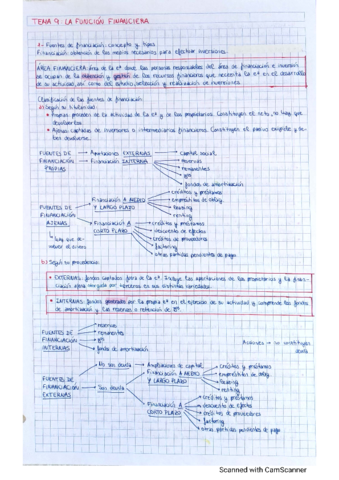 TEMA 9: LA FUNCIÓN FINANCIERA
1- Fuentes de financiación: concepto y tipos
Financiación: obtención de los medios necesarios para efectuar inversiones.
ÁREA FINANCIERA: área de la eª donde las personas responsables del área de financiación e inversión
se ocupan de la obtención y gestión de los recursos financieros que necesita la eª en el desarrollo
de su actividad, así como del estudio, selección y realización de inversiones.
Clasificación de las fuentes de financiación:
a) Según su titularidad:
Propias: proceden de la actividad de la eª y de los propietarios. Constituyen el neto, no hay que
devolverlos.
Ajenas: captadas de inversores o intermediarios financieros. Constituyen el pasivo exigible y de-
ben devolverse.
FUENTES DE FINANCIACIÓN PROPIAS
Aportaciones EXTERNAS → Capital social
Financiación INTERNA
reservas
remanentes
fondos de amortización
FUENTES DE FINANCIACIÓN AJENAS
hay que de-
volver el dinero
Financiación A MEDIO Y LARGO PLAZO
créditos y préstamos
empréstitos de oblig.
leasing
renting
Financiación A CORTO PLAZO
créditos y préstamos
descuento de efectos
créditos de proveedores
factoring
otras partidas pendientes de pago
b) Según su procedencia:
EXTERNAS: fondos captados fuera de la eª. Incluye las aportaciones de los propietarios y la finan-
ciación ajena otorgada por terceros en sus distintas variedades.
INTERNAS: fondos generados por la propia eª en el ejercicio de su actividad y comprende los fondos
de amortización y las reservas o retención de Bº.
FUENTES DE FINANCIACIÓN INTERNAS
reservas
remanentes
Bº
fondos de amortización
FUENTES DE FINANCIACIÓN EXTERNAS
No son deuda → Ampliaciones de capital
Son deuda
Financiación A MEDIO Y LARGO PLAZO
créditos y préstamos
empréstitos de oblig.
leasing
renting
Financiación A CORTO PLAZO
créditos y préstamos
descuento de efectos
créditos de proveedores
factoring
otras partidas pendientes de pago
Scanned with CamScanner